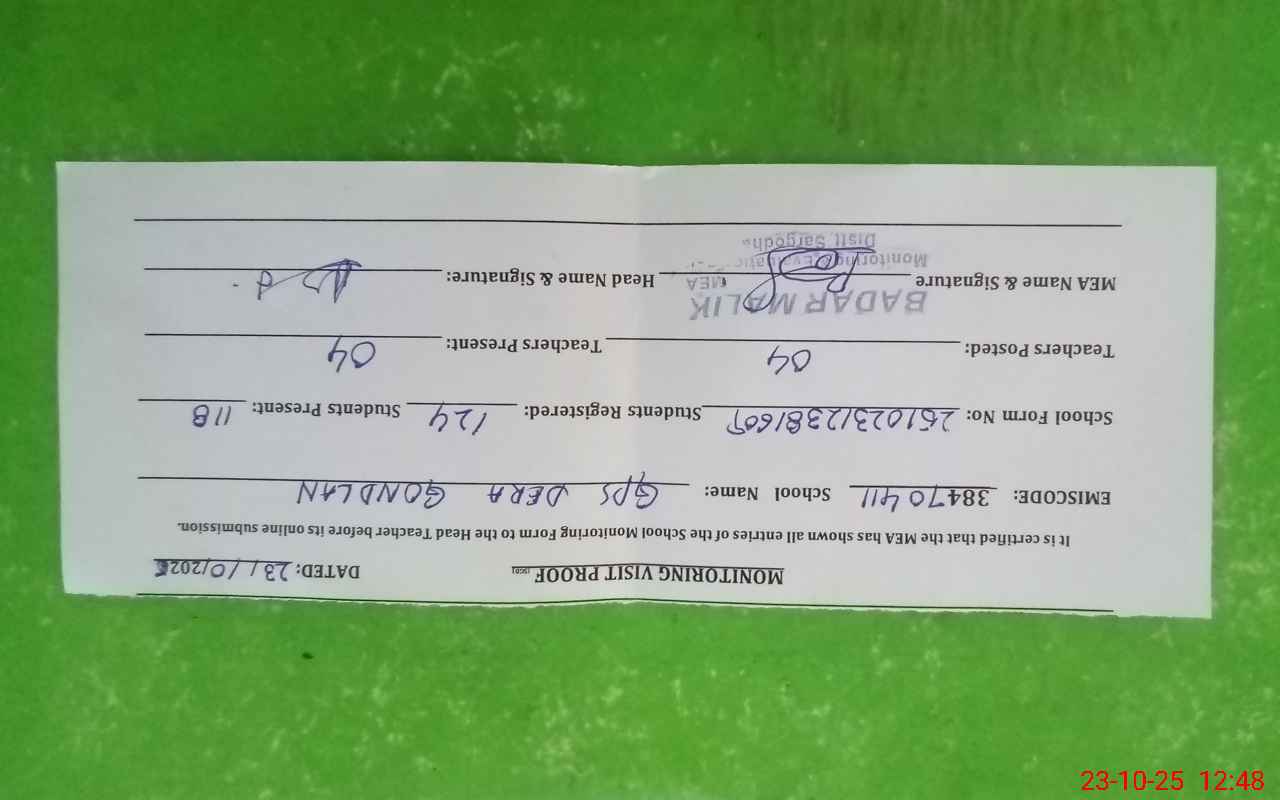 MONITORING VISIT PROOF DATED: 23/10/2025
It is certified that the MEA has shown all entries of the School Monitoring Form to the Head Teacher before its online submission.
EMISCODE: 38470411 School Name: GPS DERA GONDLAN
School Form No: Students Registered: 124 Students Present: 118
Teachers Posted: 04 Teachers Present: 04
BADAR MALIK
MEA Name & Signature MEA Head Name & Signature:
Monitoring
Distt. Sargodha
23-10-25 12:48